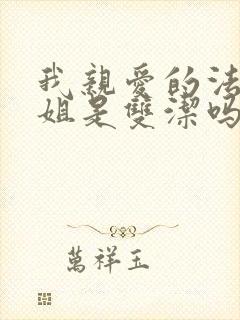 我親愛的法
姐是雙潔嗎
萬祥玉